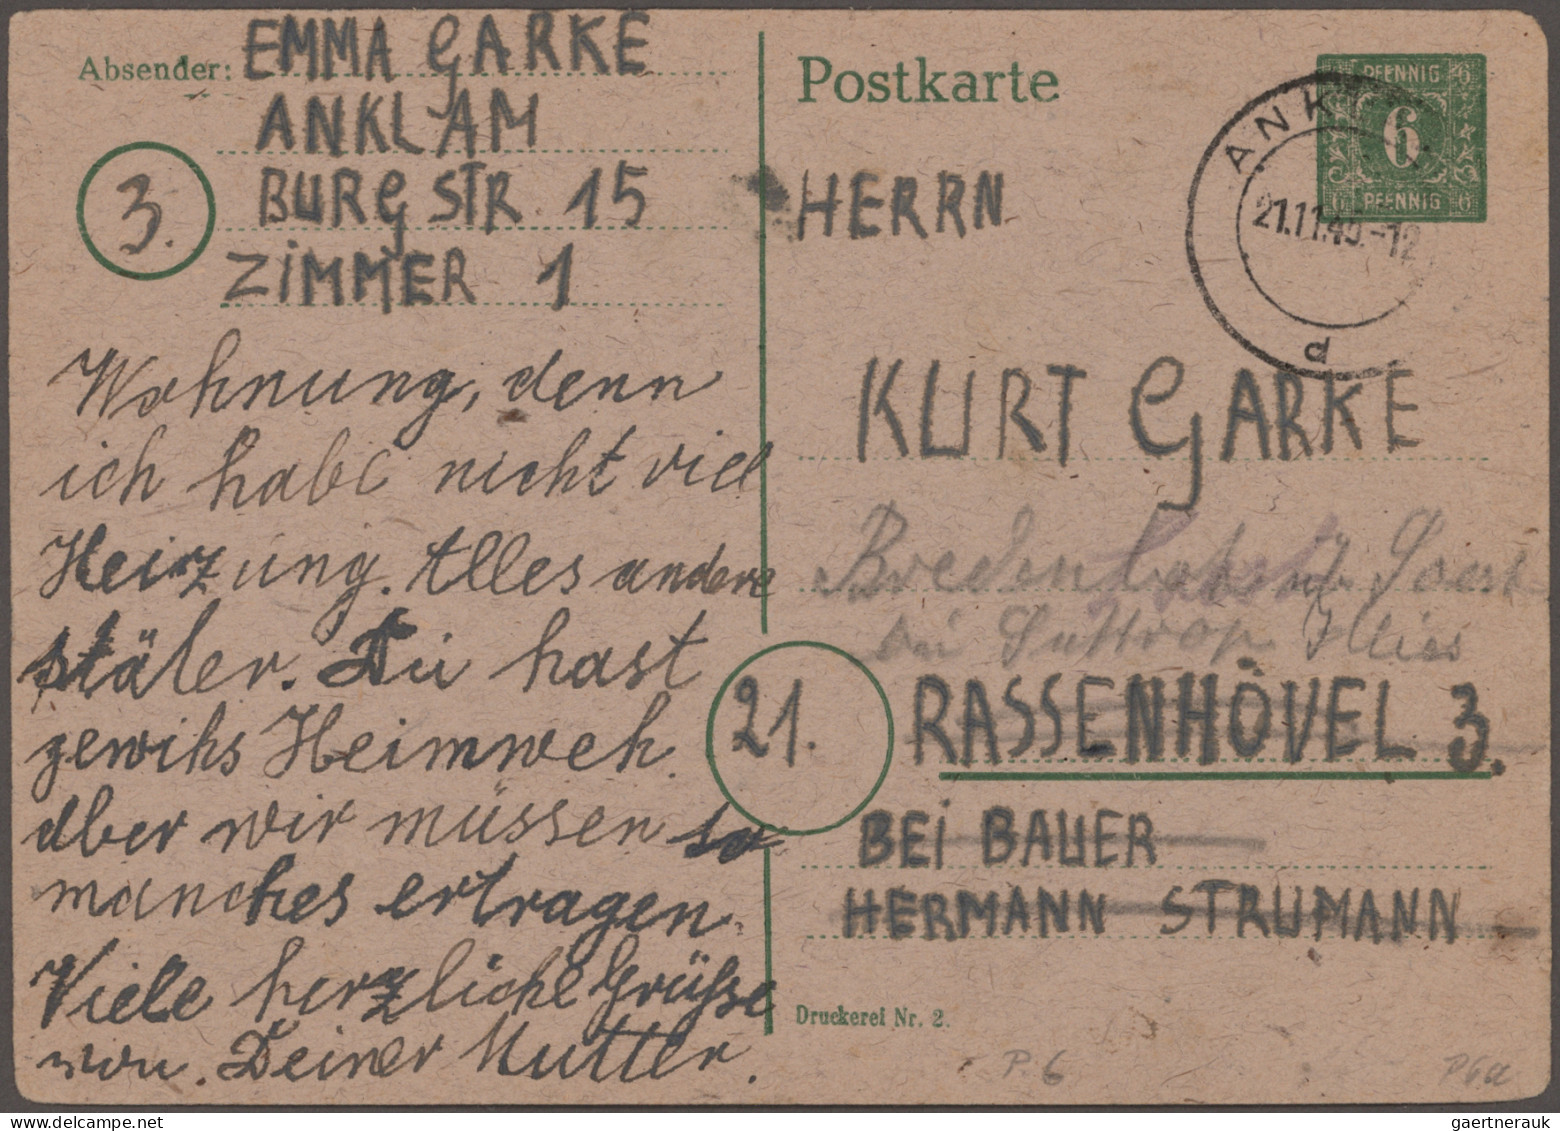 Absender: EMMA GARKE
ANKLAM
BURGSTR. 15
ZIMMER 1
3.
Wohnung, denn
ich habe nicht viel
Heizung. Alles andere
stäter. Du hast
gewihs Heimweh.
aber wir müssen so
manches ertragen.
Viele herzliche Grüße
von. Deiner Mutter.
Postkarte
PFENNIG
6
PFENNIG
ANK
21.11.45.-12
P
HERRN
KURT GARKE
Soest
bei
21.
RASSENHÖVEL 3.
BEI BAUER
HERMANN STRUMANN
Druckerei Nr. 2.
P. 6
P6a
gaertnerauk